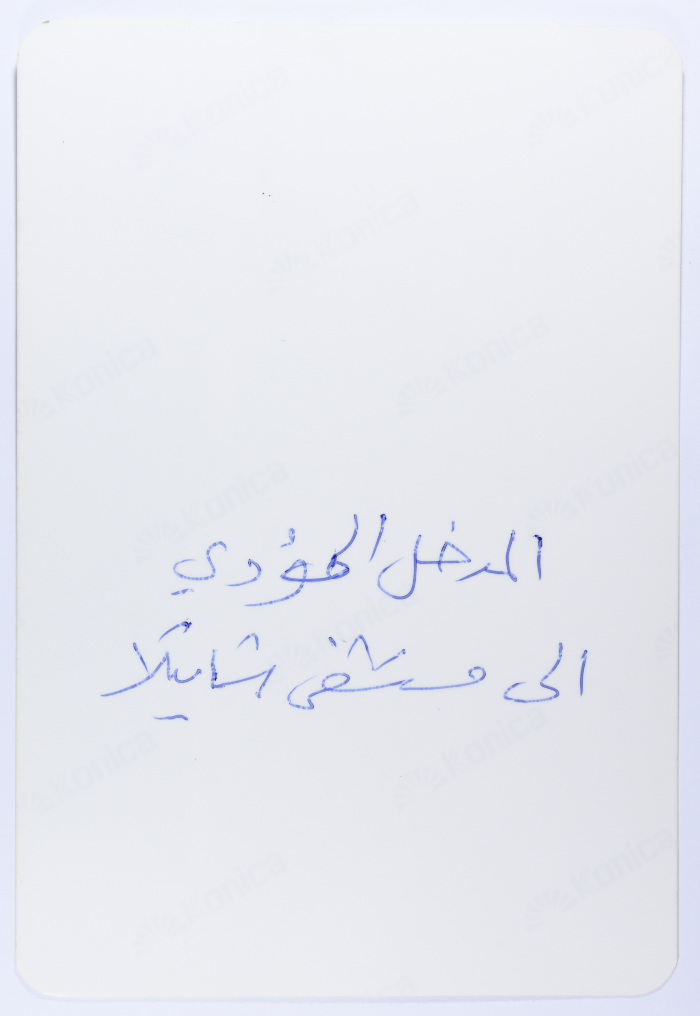 Konica Konica
Konica
Konica Konica
Konica Konica
المدخل المؤدي
Konica
الى مستشفى شاتيلا
Konica Konica
Konica Konica